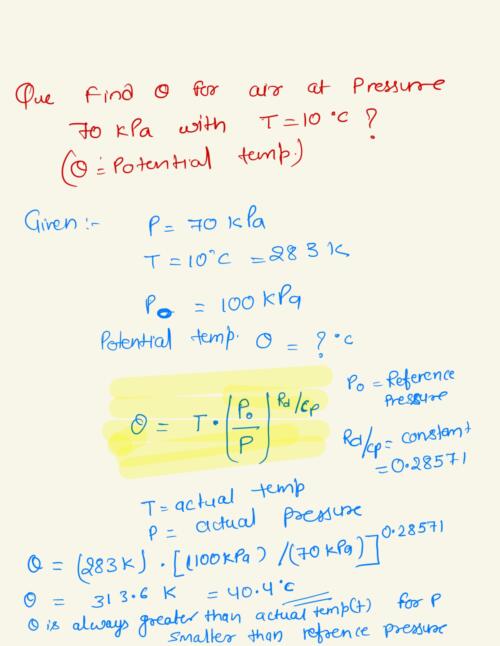 Que Find θ for air at Pressure
70 kPa with T = 10 °C ?
(θ = Potential temp.)
Given :- P = 70 kPa
T = 10°C = 283 K
P₀ = 100 kPa
Potential temp. θ = ? °C
θ = T · (P₀/P)^Rd/Cp
P₀ = Reference
Pressure
Rd/Cp = constant
= 0.28571
T = actual temp
P = actual pressure
θ = (283K) · [(100kPa) / (70 kPa)]^0.28571
θ = 313.6 K = 40.4°C
θ is always greater than actual temp(t) for P
smaller than refrence pressure